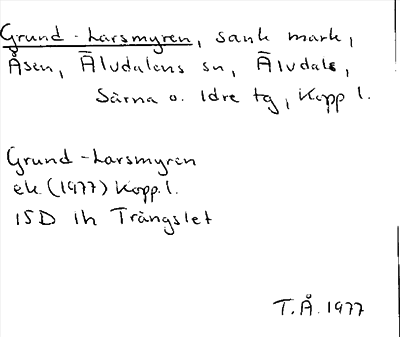 Grund-Larsmyren, sank mark,
Åsen, Älvdalens sn, Älvdals,
Särna o. Idre tg, Kopp l.
Grund-Larsmyren
ek. (1977) Kopp. l.
15D 1h Trängslet
T.Å. 1977